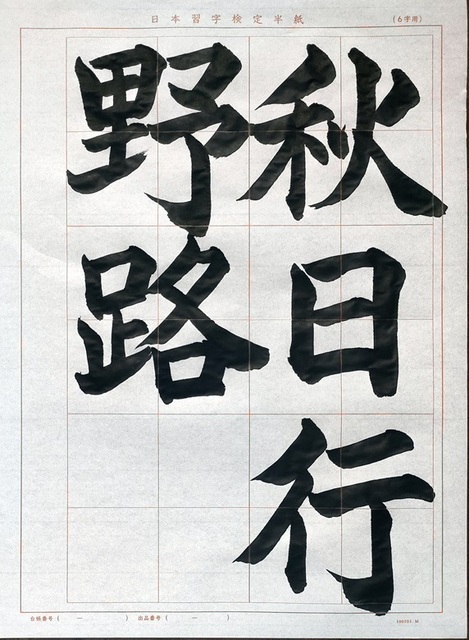 日本習字検定半紙
(6字用)
秋日行
野路
台帳番号(　ー　)　出品番号(　ー　)